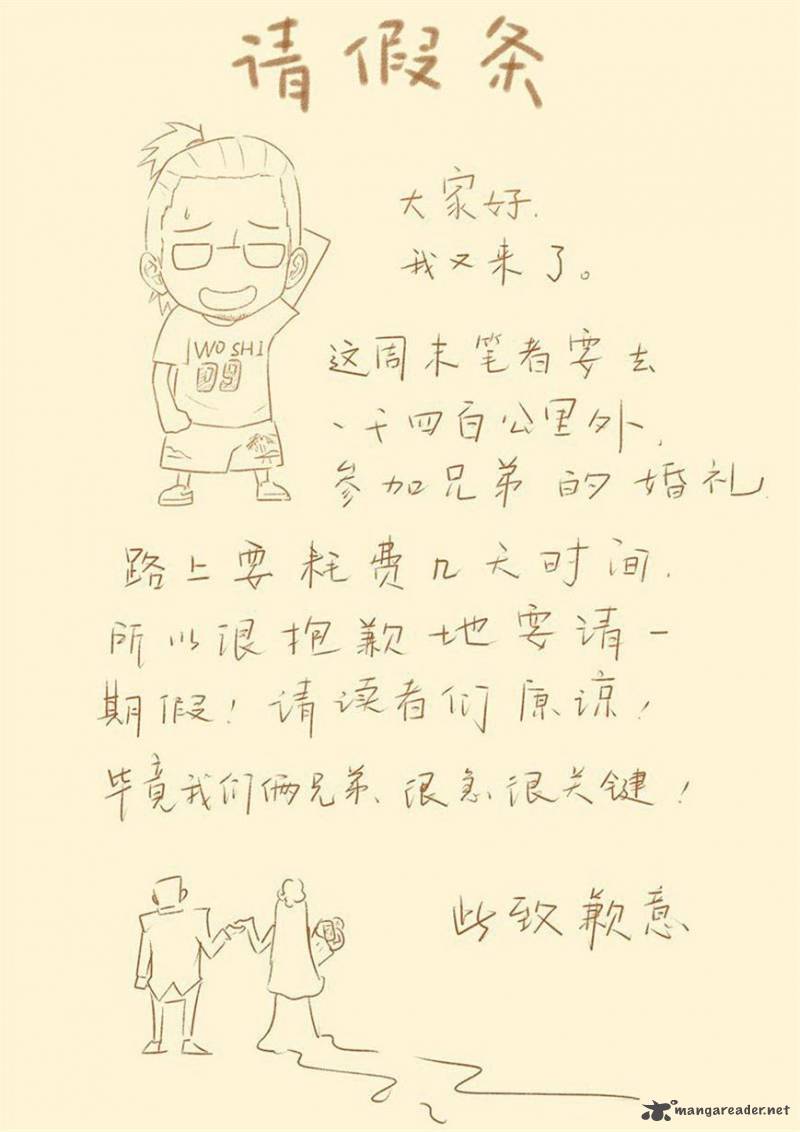 请假条
大家好.
我又来了。
WO SHI
09
这周末笔者要去
一千四百公里外,
参加兄弟的婚礼.
路上要耗费几天时间.
所以很抱歉地要请一
期假！请读者们原谅！
毕竟我们俩兄弟、很急、很关键！
此致歉意
mangareader.net